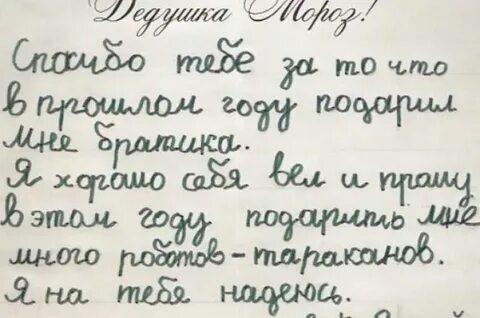 Дедушка Мороз!
Спасибо тебе за то что
в прошлом году подарил
мне братика.
Я хорошо себя вел и прошу
в этом году подарить мне
много роботов-тараканов.
Я на тебя надеюсь.